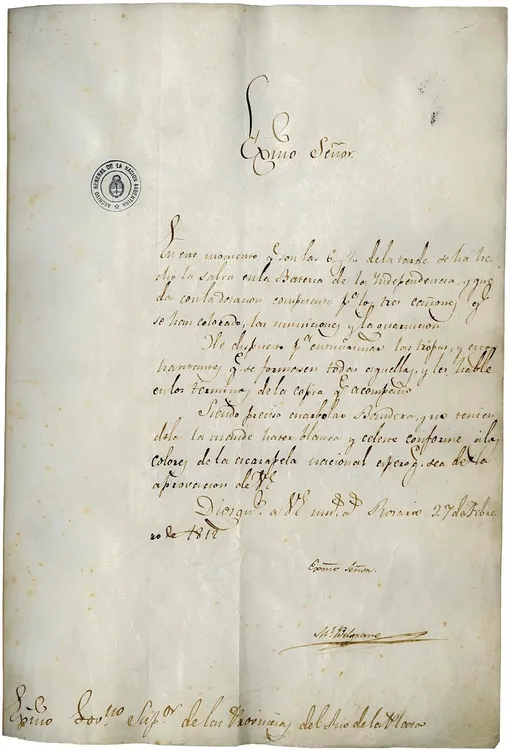 Exmo Señor.
ARCHIVO GENERAL DE LA NACION ARGENTINA
En este momento q.e son las 6 1/2 de la tarde se ha he
cho la salva en la Bateria de la Independencia, y que
da con la dotacion competente p.a los tres cañones q.e
se han colocado, las municiones y la guarnicion.
He dispuesto p.a entusiasmar las tropas, y estos
havitantes, q.e se formasen todas aquellas, y les hablé
en los terminos de la copia q.e acompaño.
Siendo preciso enarbolar Bandera, y no tenien
dola la mandé hacer blanca y celeste conforme á los
colores de la escarapela nacional espero q.e sea de la
aprovacion de V.E.
Dios gu.e a V.E. m.s a.s Rosario 27 de Febre
ro de 1812
Exmo Señor.
M.l Belgrano
Exmo Gov.no Sup.or de las Provincias del Rio de la Plata